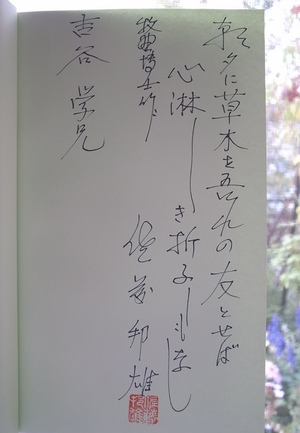 朝夕に草木を吾れの友とせば
心淋しき折ふしもなし
牧野博士作
吉谷学兄
佐藤邦雄